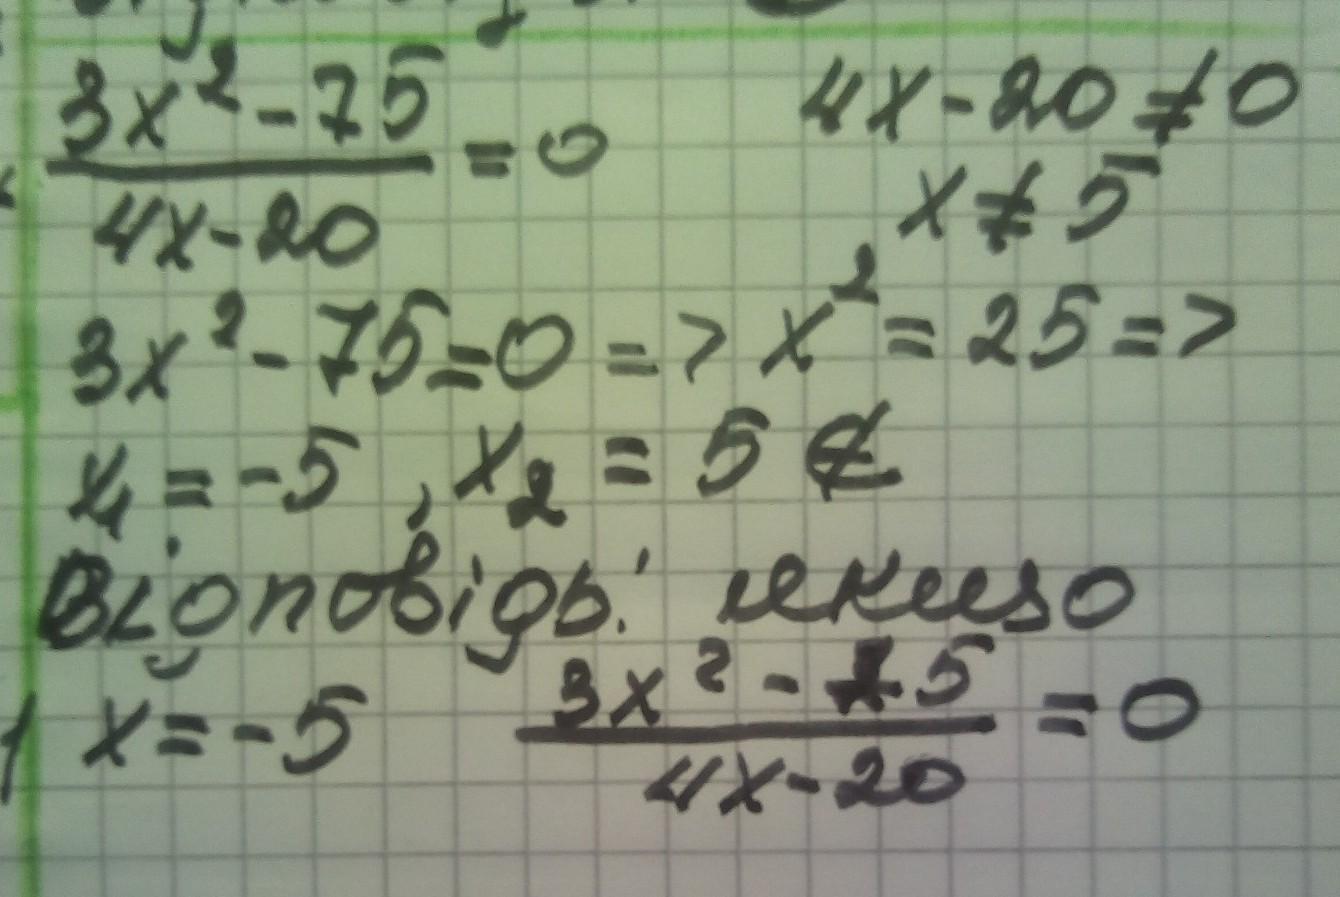 3x² - 75 / 4x - 20 = 0    4x - 20 ≠ 0
x ≠ 5
3x² - 75 = 0 => x² = 25 =>
x₁ = -5, x₂ = 5 ∉
Відповідь: якщо
x = -5    3x² - 75 / 4x - 20 = 0